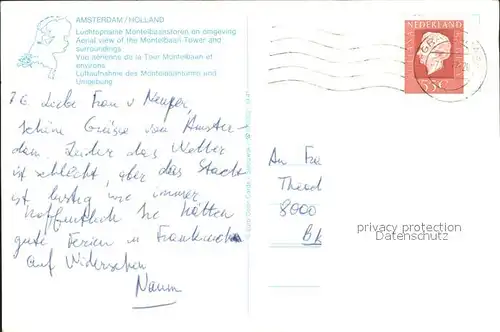 AMSTERDAM / HOLLAND
Luchtopname Montelbaanstoren en omgeving
Aerial view of the Montelbaan Tower and
surroundings
Vue aérienne de la Tour Montelbawn et
environs
Luftaufnahme des Montelbaansturms und
Umgebung
Liebe Frau v
schöne Grüsse von Amster-
dam. Leider das Wetter
ist schlecht, aber das Stadt
ist lustig wie immer
hoffentlich Sie hätten
gute Ferien in
Auf Widersehen
NEDERLAND
55c
An
Thead
8000
privacy protection
Datenschutz